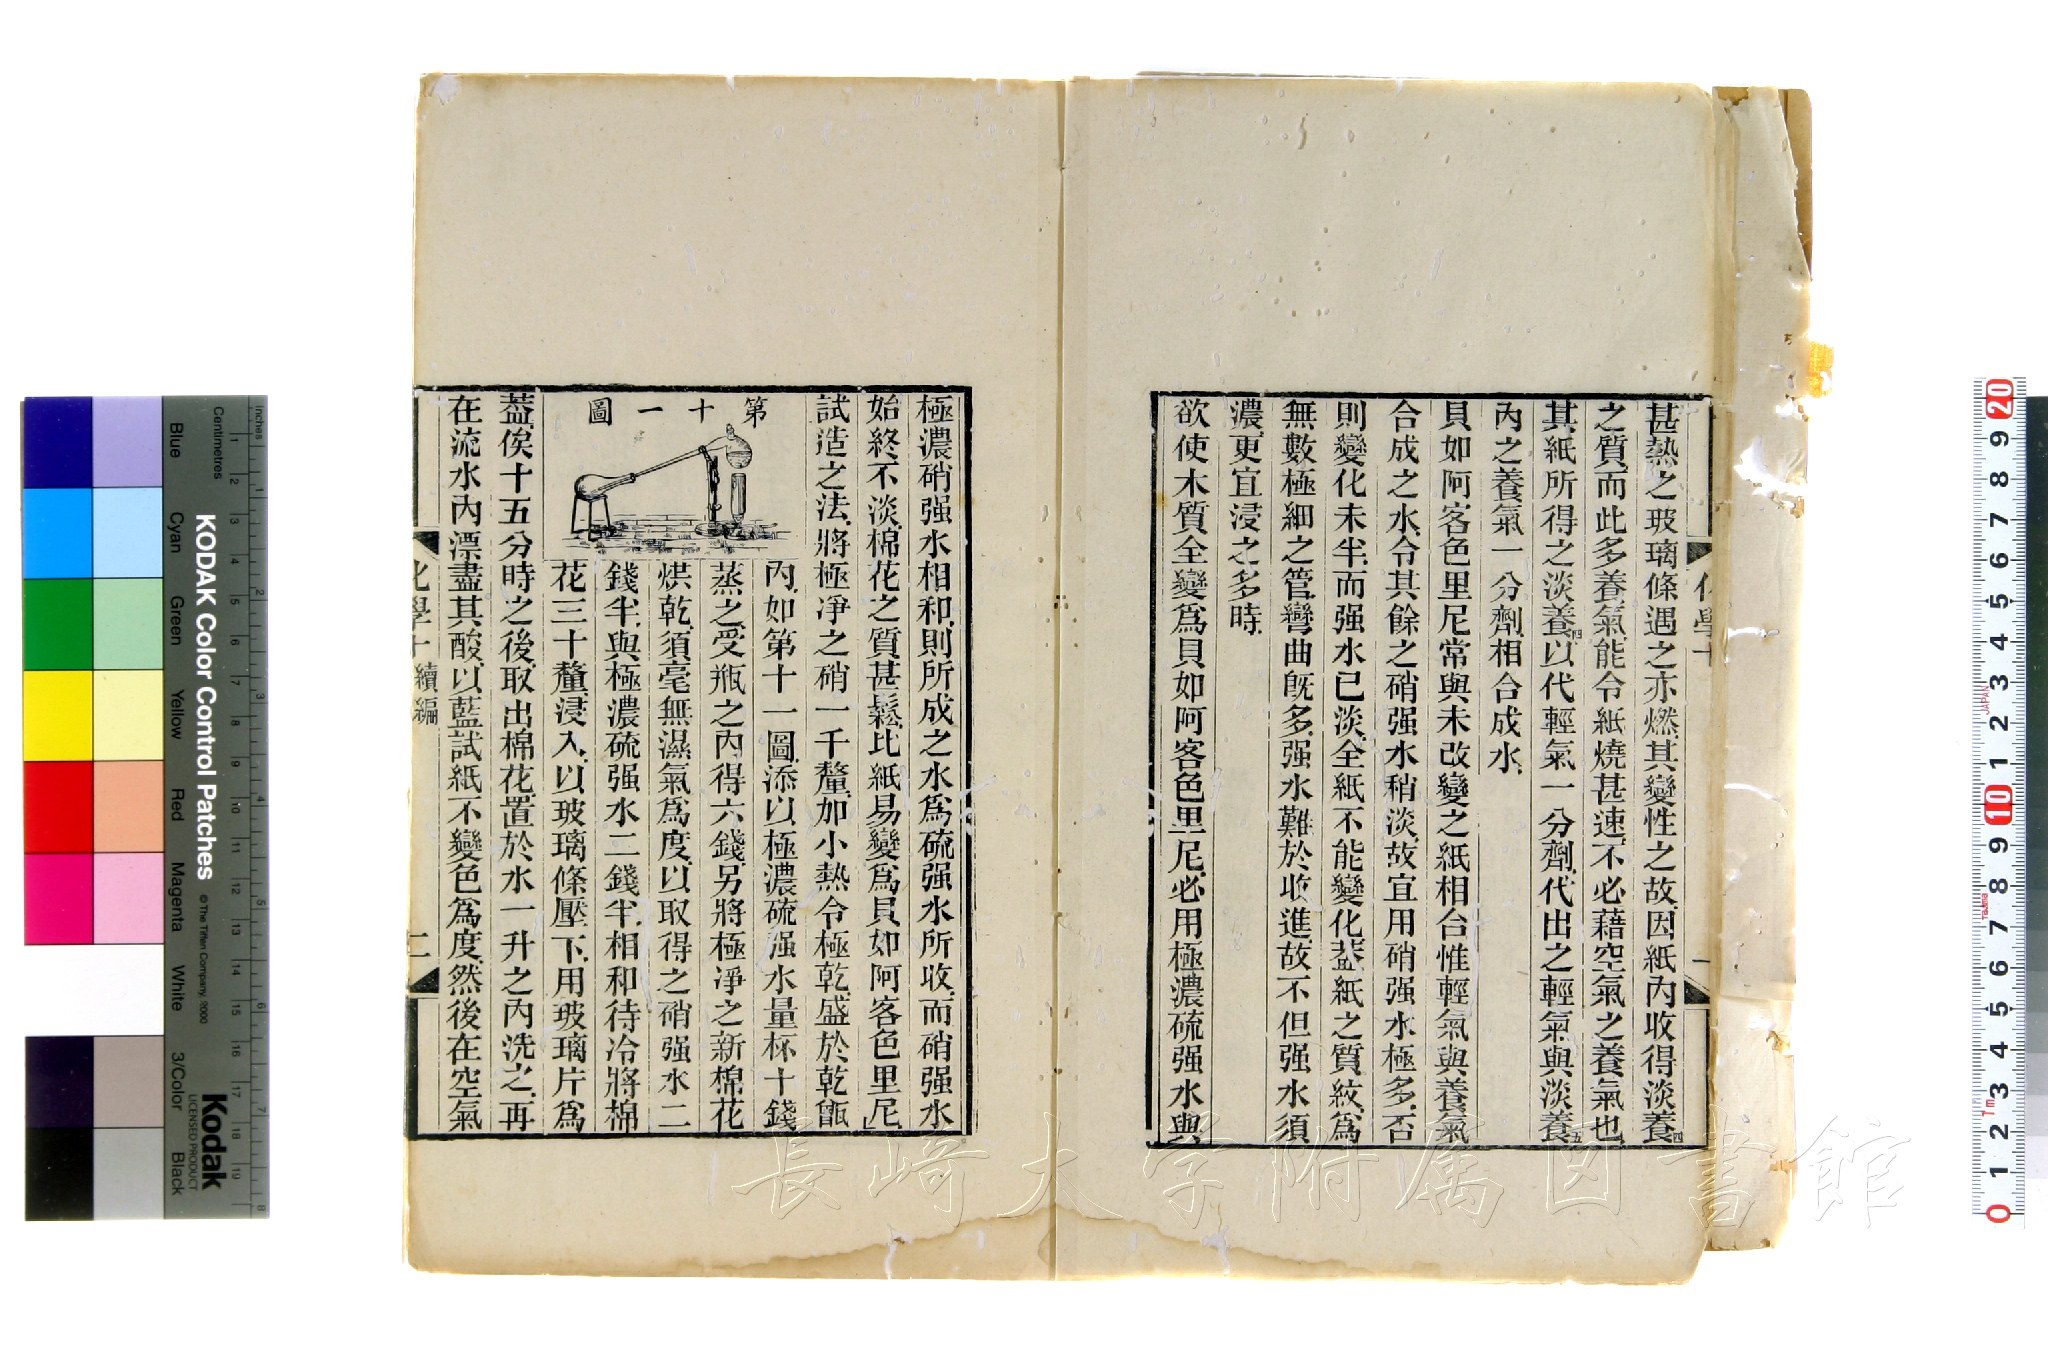 甚熱之玻璃條遇之亦燃其變性之故因紙內收得淡養四
之質而此多養氣能令紙燒甚速不必藉空氣之養氣也
其紙所得之淡養四以代輕氣一分劑代出之輕氣與淡養五
內之養氣一分劑相合成水
貝如阿客色里尼常與未改變之紙相合惟輕氣與養氣
合成之水令其餘之硝强水稍淡故宜用硝强水極多否
則變化未半而强水已淡全紙不能變化葢紙之質紋爲
無數極細之管彎曲旣多强水難於收進故不但强水須
濃更宜浸之多時
欲使木質全變爲貝如阿客色里尼必用極濃硫强水與
極濃硝强水相和則所成之水爲硫强水所收而硝强水
始終不淡棉花之質甚鬆比紙易變爲貝如阿客色里尼
試造之法將極淨之硝一千釐加小熱令極乾盛於乾甑
第十一圖
內如第十一圖添以極濃硫强水量杯十錢
蒸之受瓶之內得六錢另將極淨之新棉花
烘乾須毫無濕氣爲度以取得之硝强水二
錢半與極濃硫强水二錢半相和待冷將棉
花三十釐浸入以玻璃條壓下用玻璃片爲
葢俟十五分時之後取出棉花置於水一升之內洗之再
在流水內漂盡其酸以藍試紙不變色爲度然後在空氣
化學十續編
二
長崎大学附属図書館
KODAK Color Control Patches
© The Tiffen Company, 2000
Kodak
LICENSED PRODUCT
Blue
Cyan
Green
Yellow
Red
Magenta
White
3/Color
Black
Centimetres
Inches